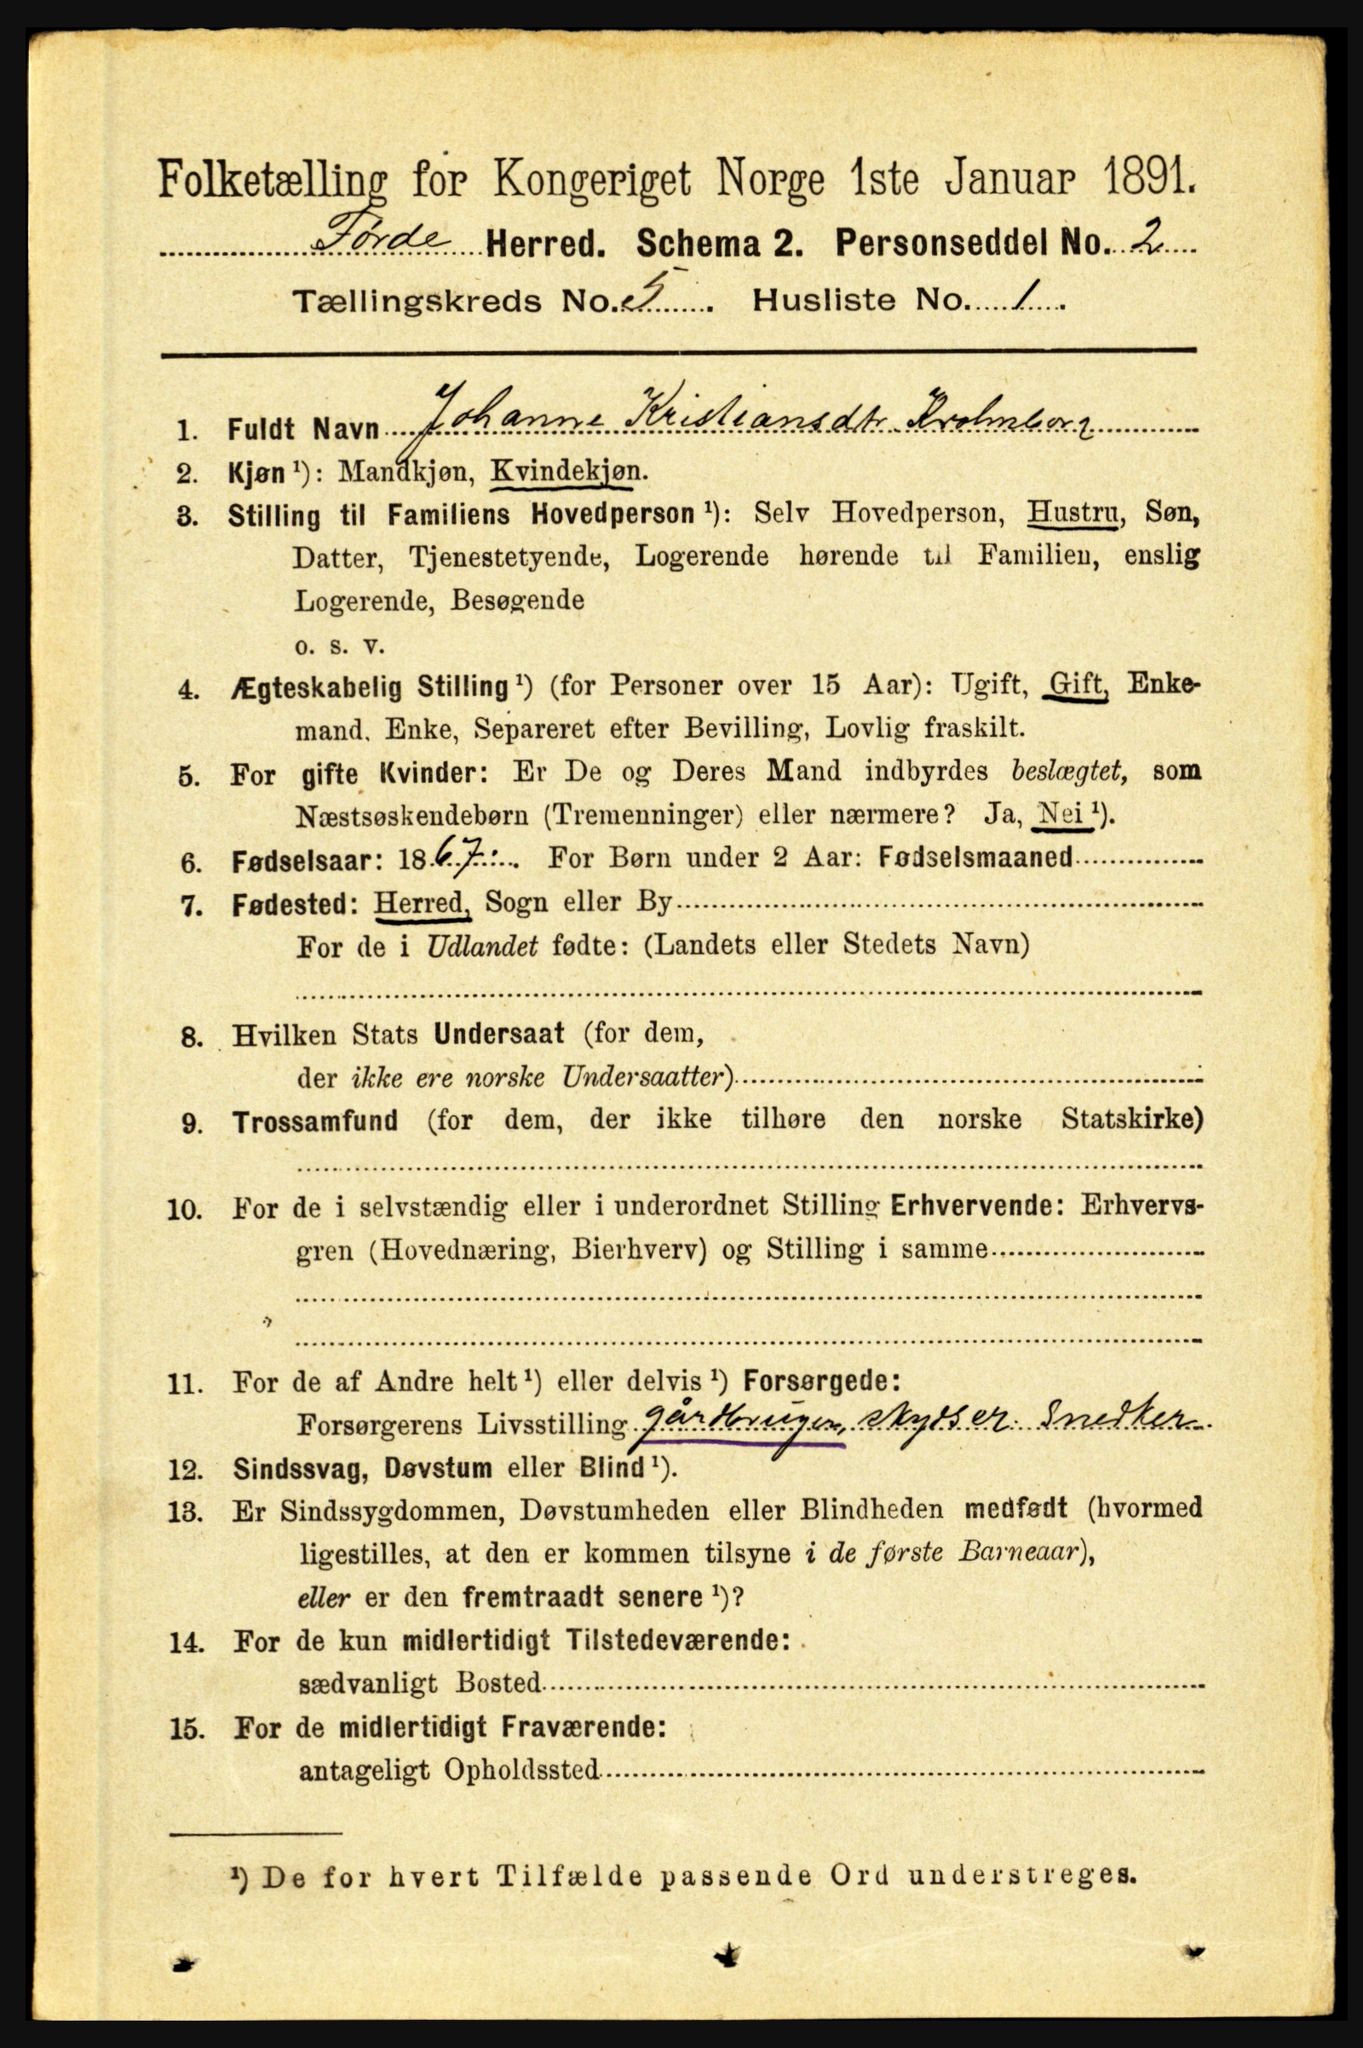 Folketælling for Kongeriget Norge 1ste Januar 1891.
Førde Herred. Schema 2. Personseddel No. 2
Tællingskreds No. 5. Husliste No. 1.
1. Fuldt Navn Johanne Kristiansdtr
2. Kjøn ¹): Mandkjøn, Kvindekjøn.
3. Stilling til Familiens Hovedperson ¹): Selv Hovedperson, Hustru, Søn,
Datter, Tjenestetyende, Logerende hørende til Familien, enslig
Logerende, Besøgende
o. s. v.
4. Ægteskabelig Stilling ¹) (for Personer over 15 Aar): Ugift, Gift, Enke-
mand, Enke, Separeret efter Bevilling, Lovlig fraskilt.
5. For gifte Kvinder: Er De og Deres Mand indbyrdes beslægtet, som
Næstsøskendebørn (Tremenninger) eller nærmere? Ja, Nei ¹).
6. Fødselsaar: 1867. For Børn under 2 Aar: Fødselsmaaned
7. Fødested: Herred, Sogn eller By
For de i Udlandet fødte: (Landets eller Stedets Navn)
8. Hvilken Stats Undersaat (for dem,
der ikke ere norske Undersaatter)
9. Trossamfund (for dem, der ikke tilhøre den norske Statskirke)
10. For de i selvstændig eller i underordnet Stilling Erhvervende: Erhvervs-
gren (Hovednæring, Bierhverv) og Stilling i samme
11. For de af Andre helt ¹) eller delvis ¹) Forsørgede:
Forsørgerens Livsstilling gårdbruger, skydser. Snedker
12. Sindssvag, Døvstum eller Blind ¹).
13. Er Sindssygdommen, Døvstumheden eller Blindheden medfødt (hvormed
ligestilles, at den er kommen tilsyne i de første Barneaar),
eller er den fremtraadt senere ¹)?
14. For de kun midlertidigt Tilstedeværende:
sædvanligt Bosted
15. For de midlertidigt Fraværende:
antageligt Opholdssted
¹) De for hvert Tilfælde passende Ord understreges.